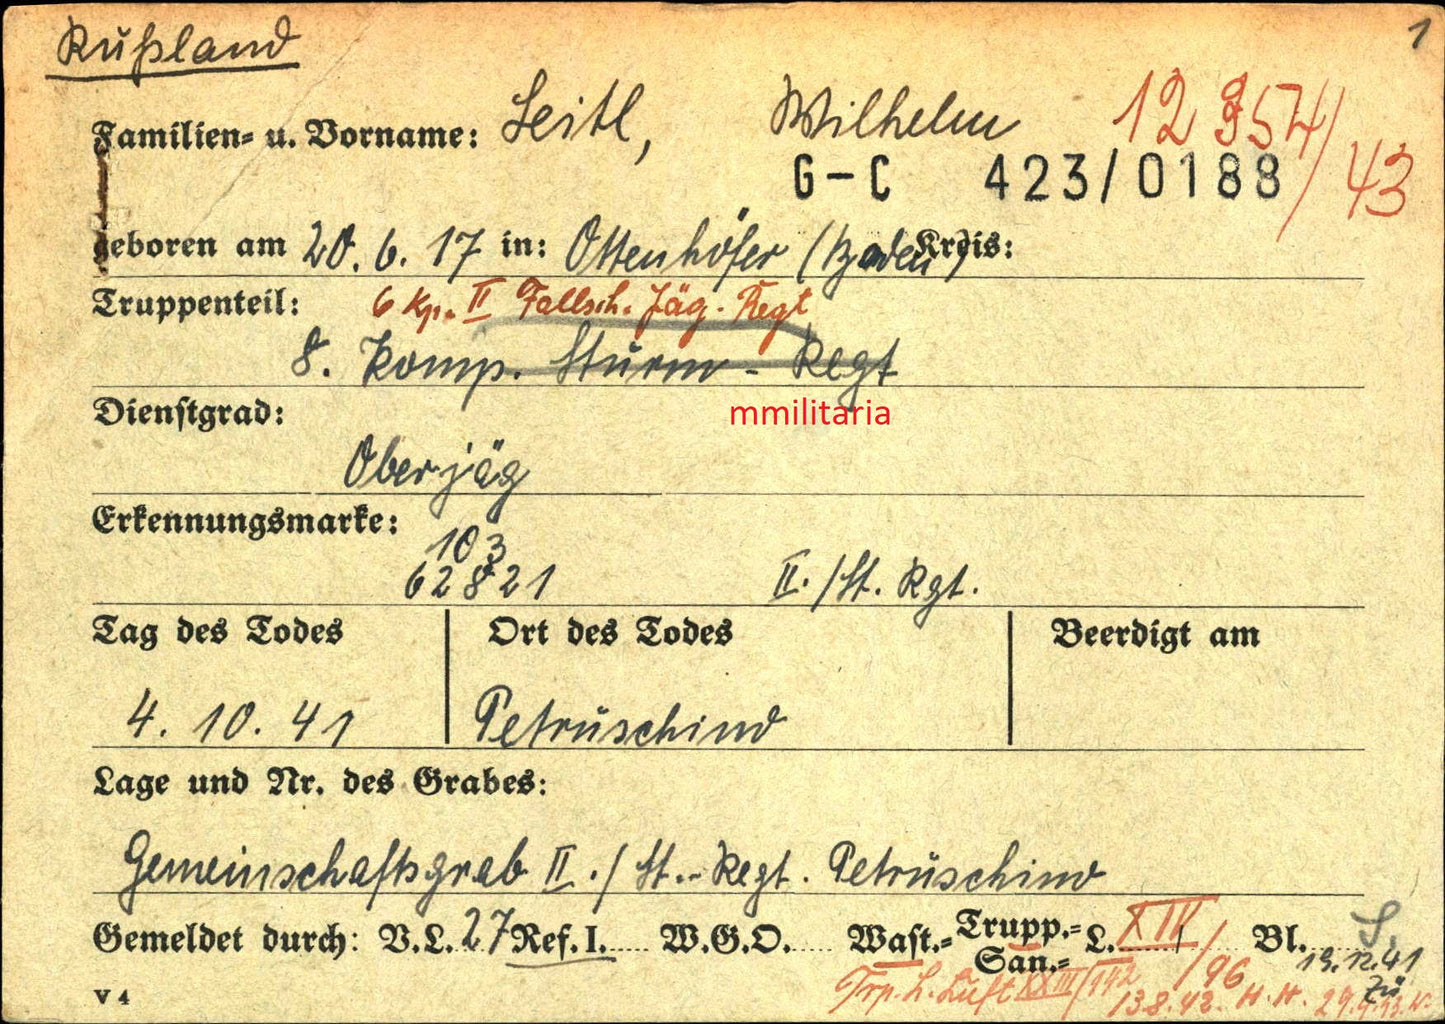 Rußland
1
Familien- u. Vorname: Seitl, Wilhelm 12 354/43
G-C 423/0188
geboren am 20.6.17 in: Ottenhöfer (Baden) Kreis:
Truppenteil: 6 Kp. II Fallsch. Jäg. Regt
8. Komp. Sturm-Regt
Dienstgrad:
mmilitaria
Oberjäg
Erkennungsmarke:
103
62821 II./St. Rgt.
Tag des Todes Ort des Todes Beerdigt am
4.10.41 Petruschino
Lage und Nr. des Grabes:
Gemeinschaftsgrab II./St.-Regt. Petruschino
Gemeldet durch: V.L. 27 Ref. I. W.G.O. Wast.- Trupp.- San.- L. XIV / 96 Bl. S.
19.12.41
Trp. L. Luft XXIII/142 13.8.42. H.H.
Zü
V 4